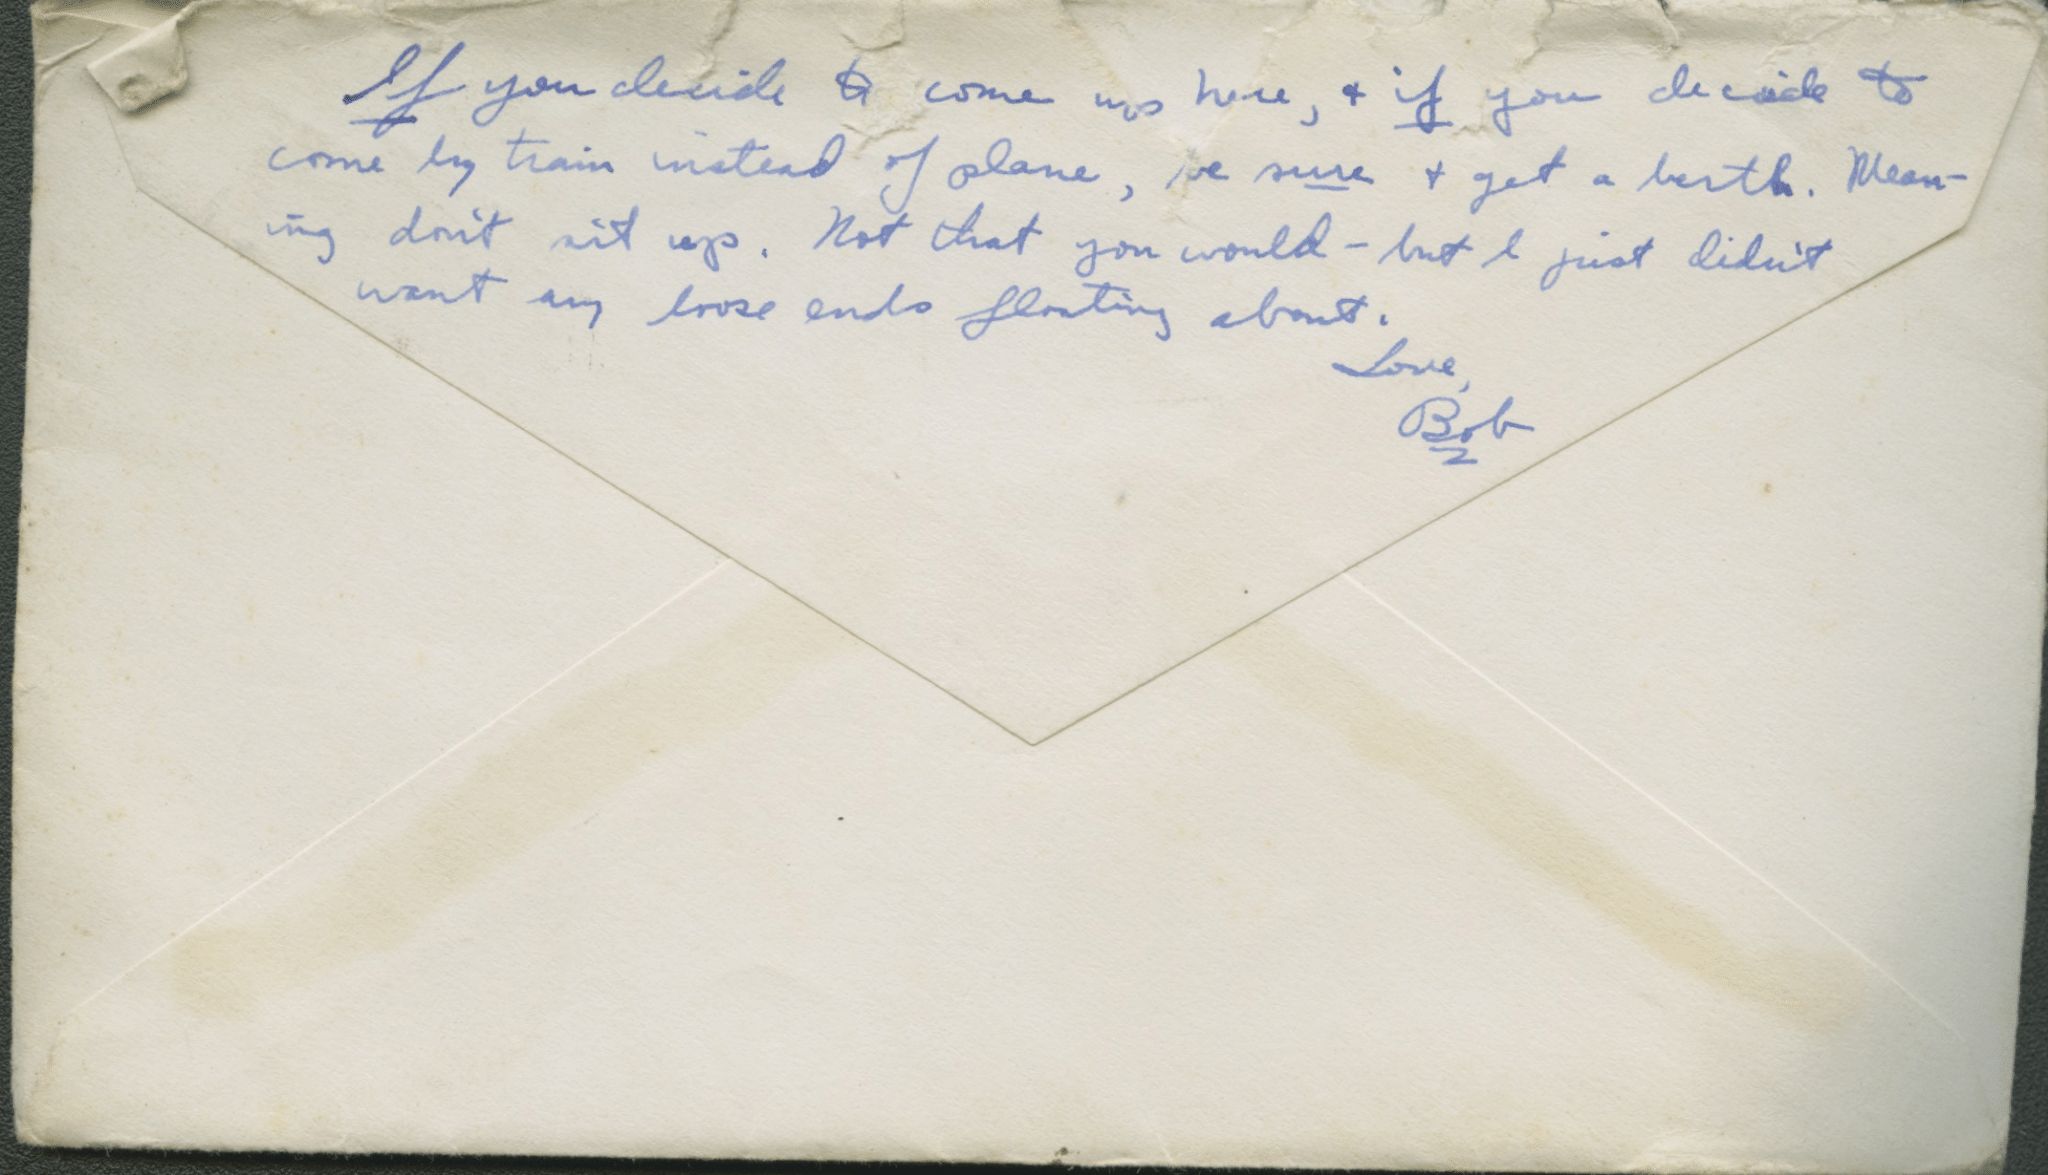 If you decide to come up here, + if you decide to
come by train instead of plane, be sure + get a berth. Mean-
ing don't sit up. Not that you would - but I just didn't
want any loose ends floating about.
Love,
Bob